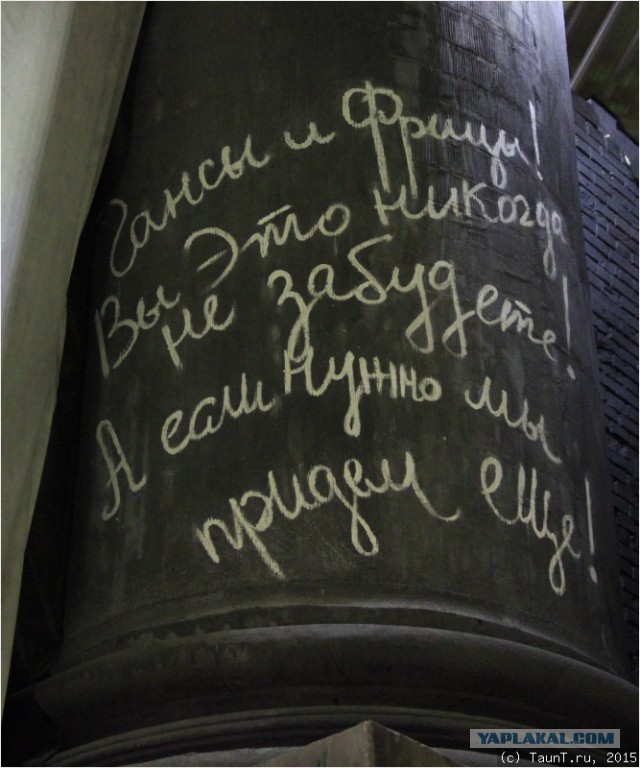 Гансы и Фрицы!
Вы это никогда
не забудете!
А если нужно мы
придем еще!
YAPLAKAL.COM
(c) TaunT.ru, 2015